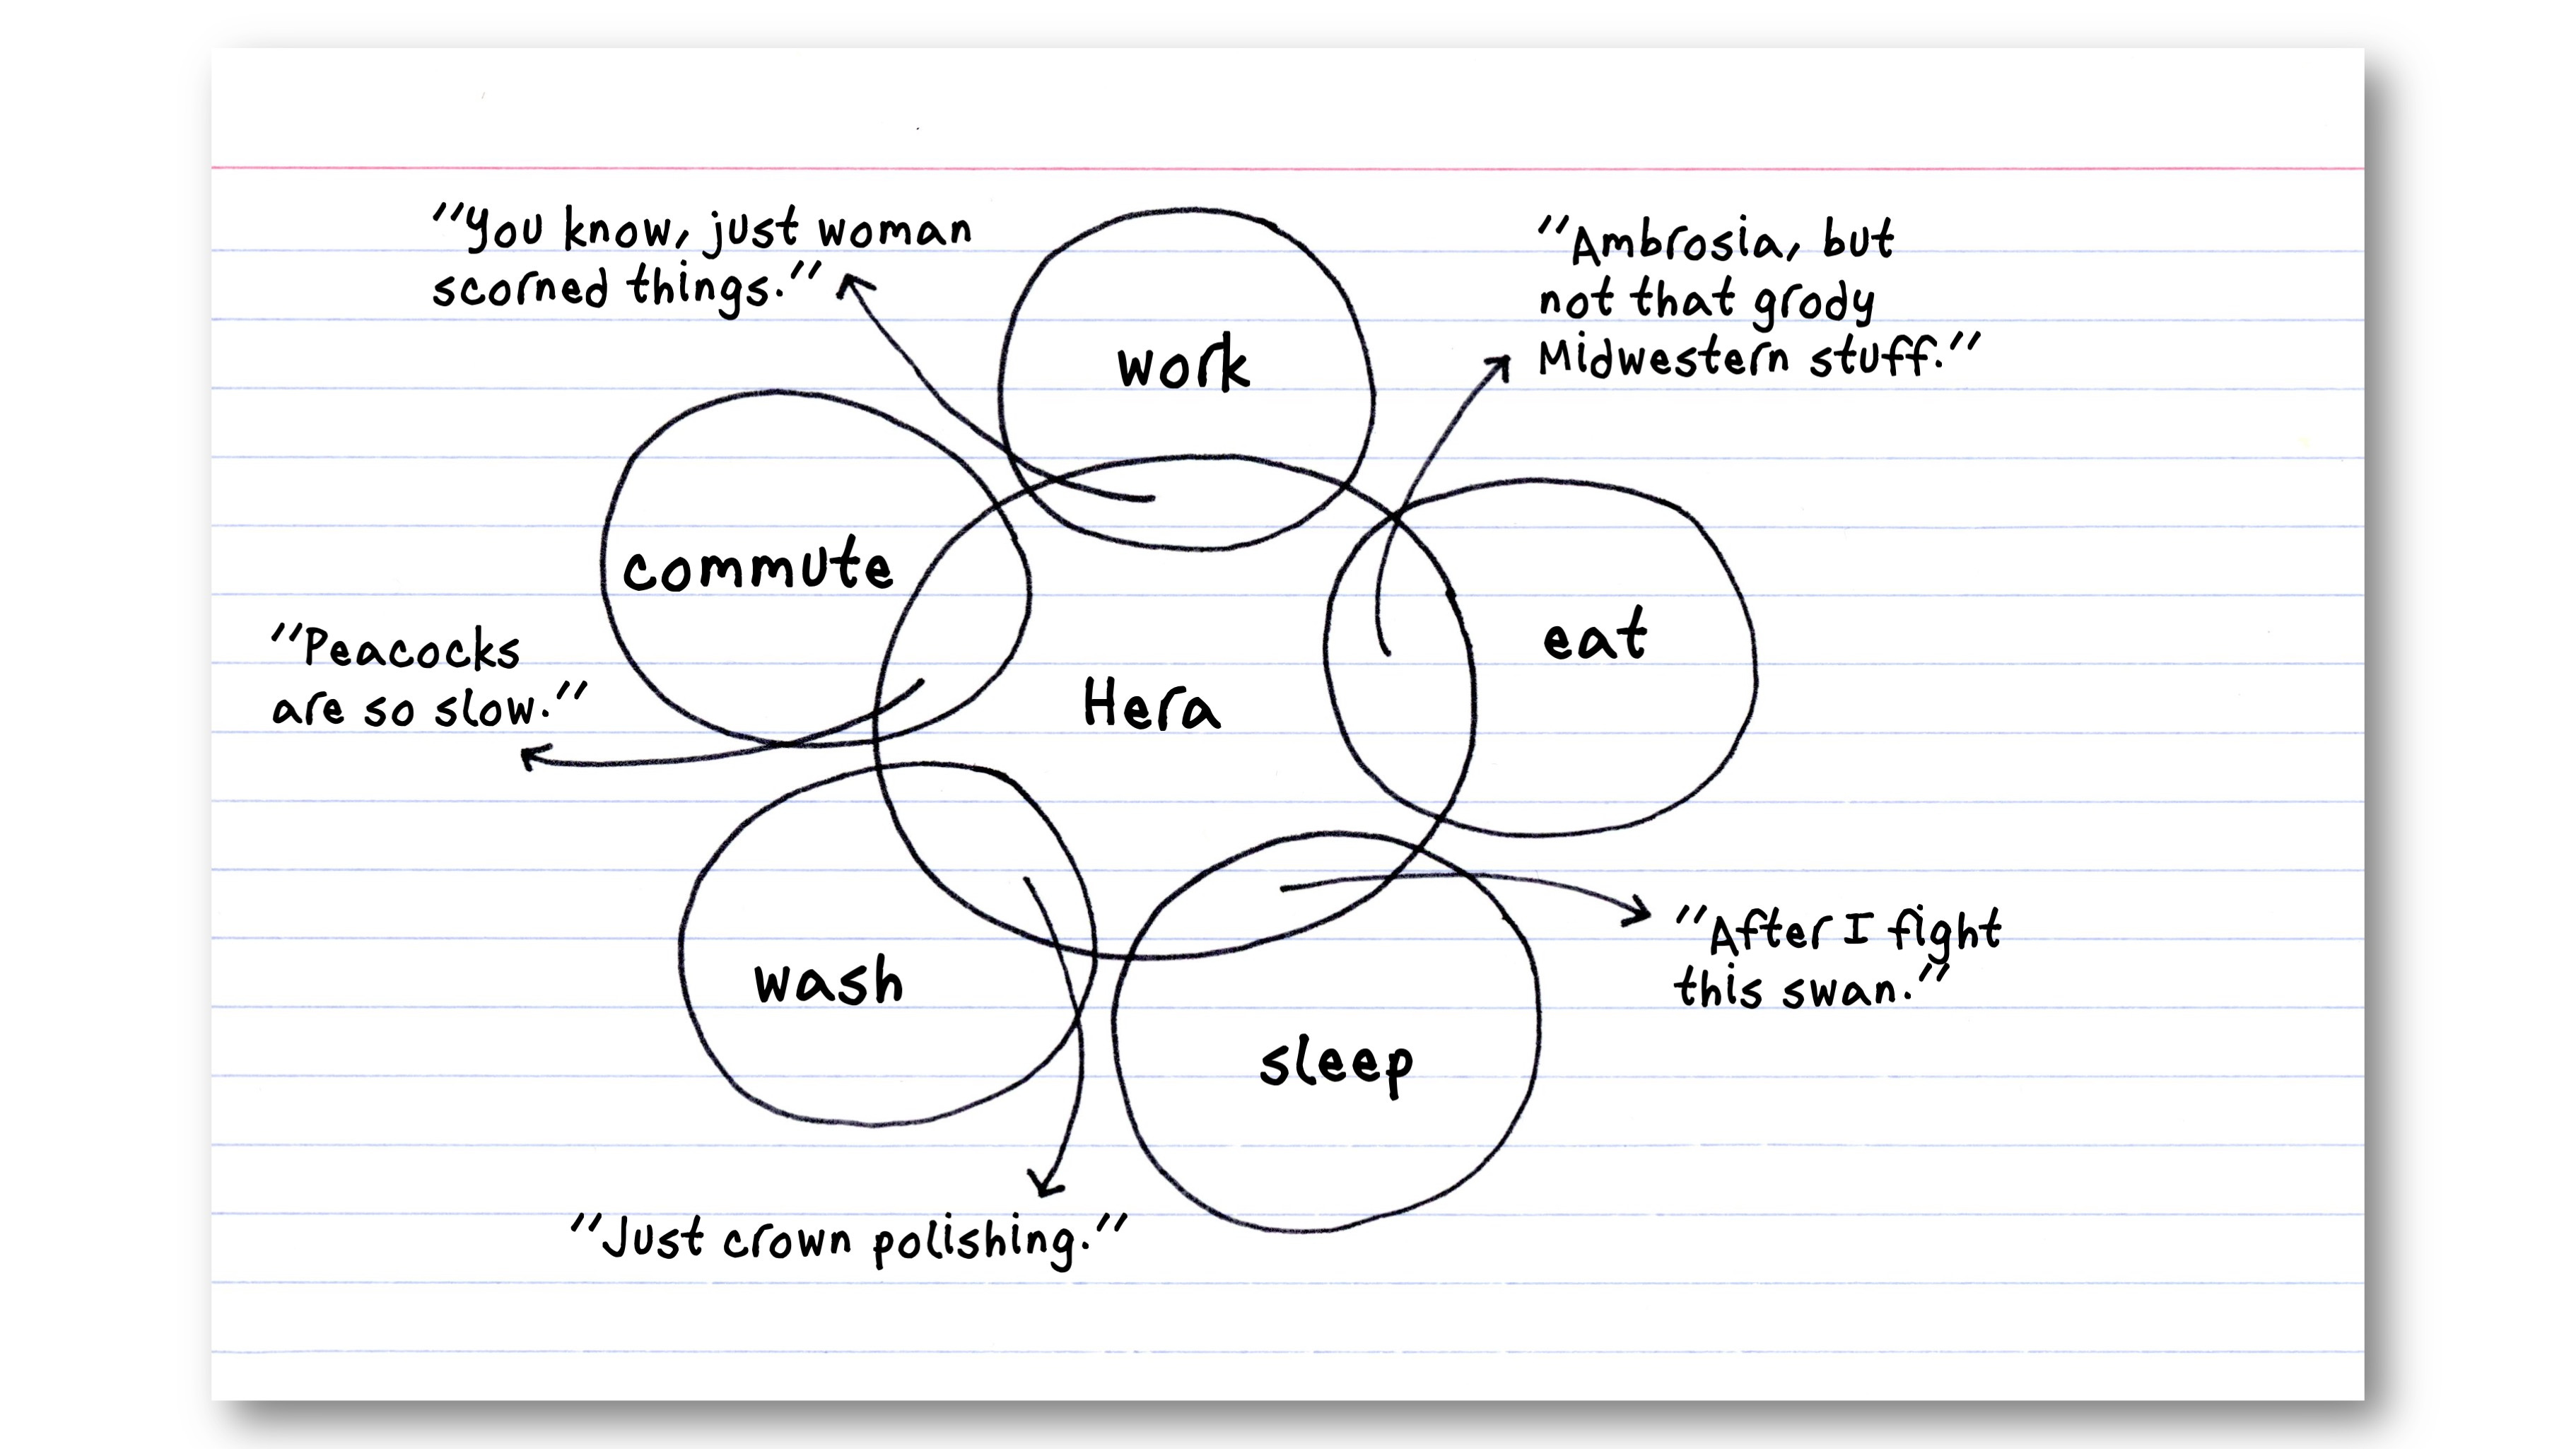 "You know, just woman
scorned things."
"Ambrosia, but
not that grody
Midwestern stuff."
work
commute
eat
"Peacocks
are so slow."
Hera
"After I fight
this swan."
wash
sleep
"Just crown polishing."